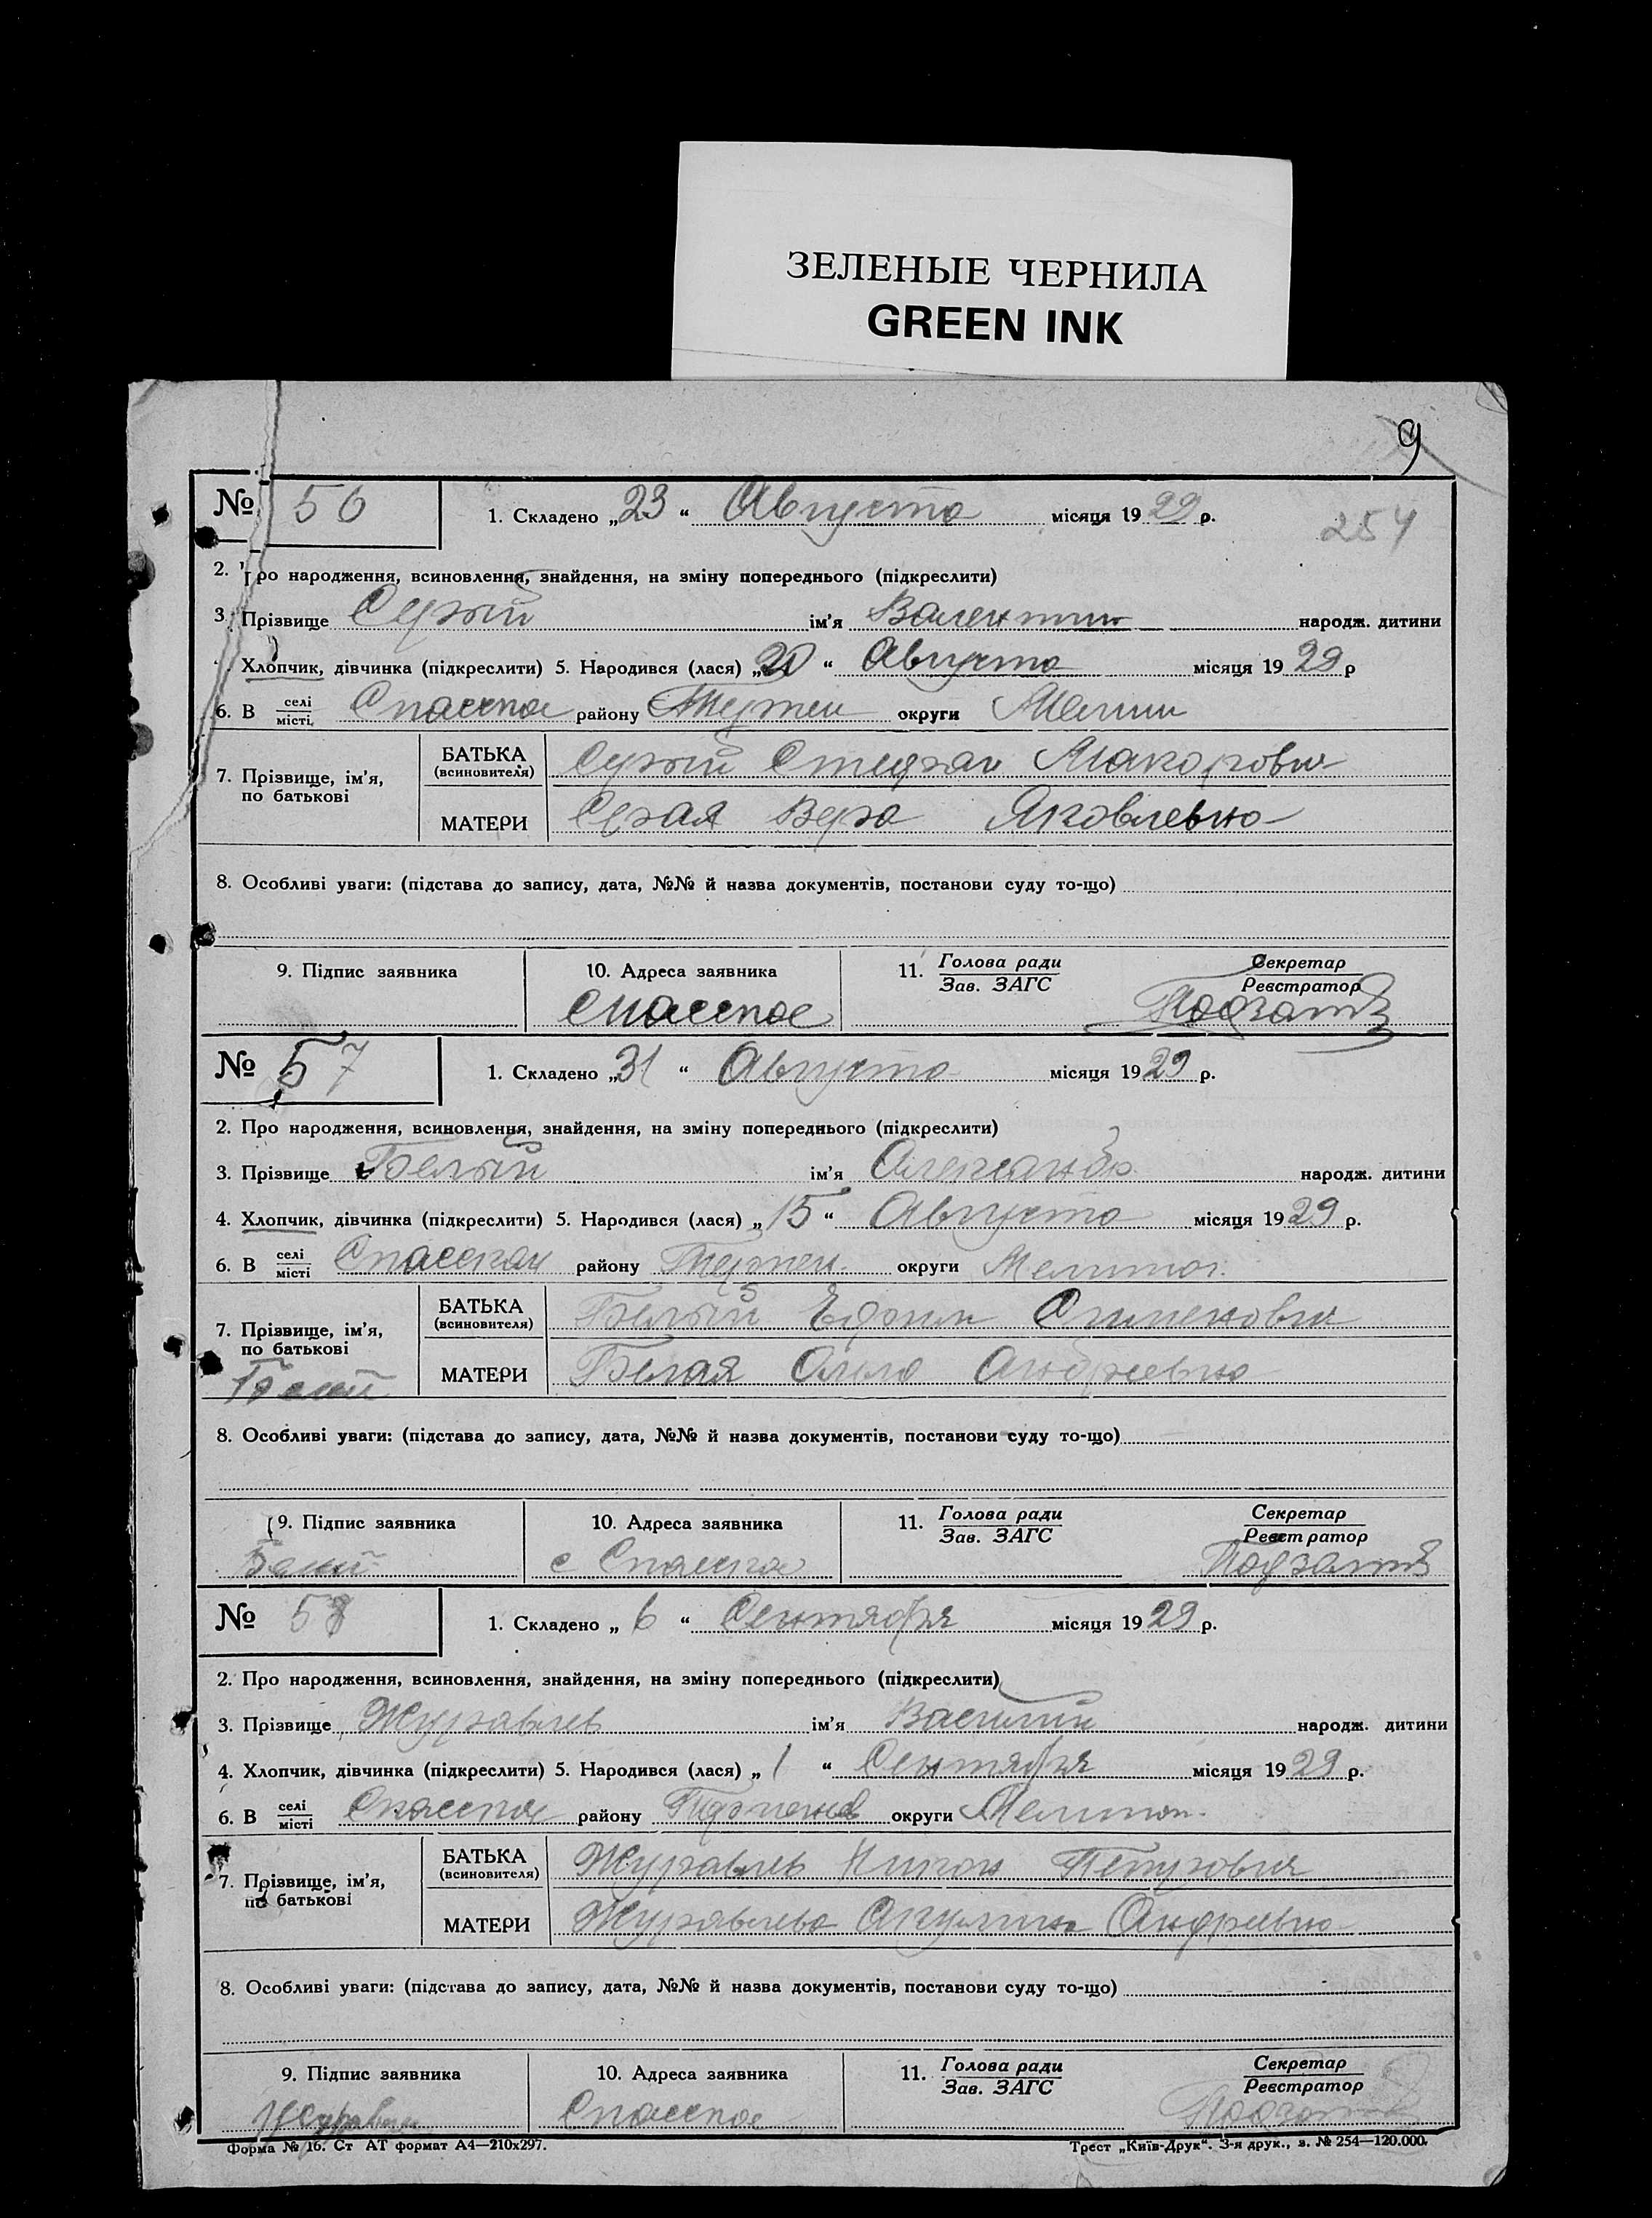 ЗЕЛЕНЫЕ ЧЕРНИЛА
GREEN INK
9
№ 56 1. Складено „23“ Августа місяця 1929 р.
254
2. Про народження, всиновлення, знайдення, на зміну попереднього (підкреслити)
3. Прізвище Серый ім'я Валентин народж. дитини
Хлопчик, дівчинка (підкреслити) 5. Народився (лася) „20“ Августа місяця 1929 р
6. В селі місті, Спасское району округи Мелит
7. Прізвище, ім'я, по батькові
БАТЬКА (всиновителя) Серый Стефан Макарович
МАТЕРИ Серая Вера Яковлевна
8. Особливі уваги: (підстава до запису, дата, №№ й назва документів, постанови суду то-що)
9. Підпис заявника 10. Адреса заявника 11. Голова ради Зав. ЗАГС Секретар Реєстратор
Спасское
№ 57 1. Складено „31“ Августа місяця 1929 р.
2. Про народження, всиновлення, знайдення, на зміну попереднього (підкреслити)
3. Прізвище Белый ім'я народж. дитини
4. Хлопчик, дівчинка (підкреслити) 5. Народився (лася) „15“ Августа місяця 1929 р.
6. В селі місті району округи Мелитоп.
7. Прізвище, ім'я, по батькові
БАТЬКА (всиновителя) Белый Ефим
МАТЕРИ Белая Ольга Андреевна
8. Особливі уваги: (підстава до запису, дата, №№ й назва документів, постанови суду то-що)
9. Підпис заявника 10. Адреса заявника 11. Голова ради Зав. ЗАГС Секретар Реєстратор
с Спасское
№ 58 1. Складено „6“ Сентября місяця 1929 р.
2. Про народження, всиновлення, знайдення, на зміну попереднього (підкреслити)
3. Прізвище Журавлев ім'я Василий народж. дитини
4. Хлопчик, дівчинка (підкреслити) 5. Народився (лася) „1“ Сентября місяця 1929 р.
6. В селі місті Спасское району округи Мелитоп.
7. Прізвище, ім'я, по батькові
БАТЬКА (всиновителя) Журавлев Петрович
МАТЕРИ Журавлева Акулина Андреевна
8. Особливі уваги: (підстава до запису, дата, №№ й назва документів, постанови суду то-що)
9. Підпис заявника 10. Адреса заявника 11. Голова ради Зав. ЗАГС Секретар Реєстратор
Спасское
Форма № 16. Ст АТ формат А4—210х297. Трест „Київ-Друк“. 3-я друк., з. № 254—120.000.